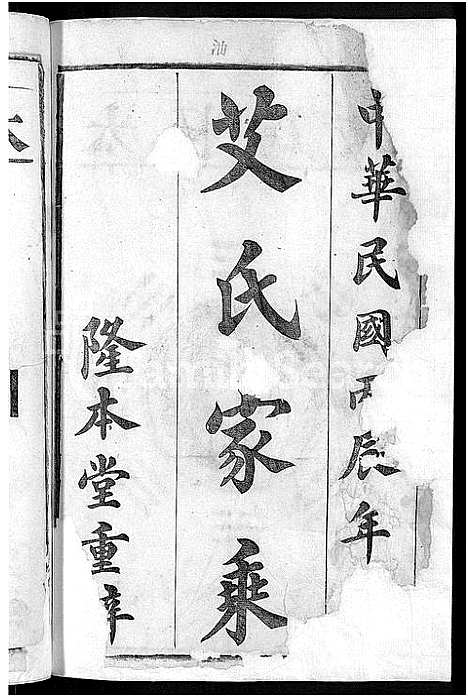 中華民國丙辰年
艾氏家乘
隆本堂重